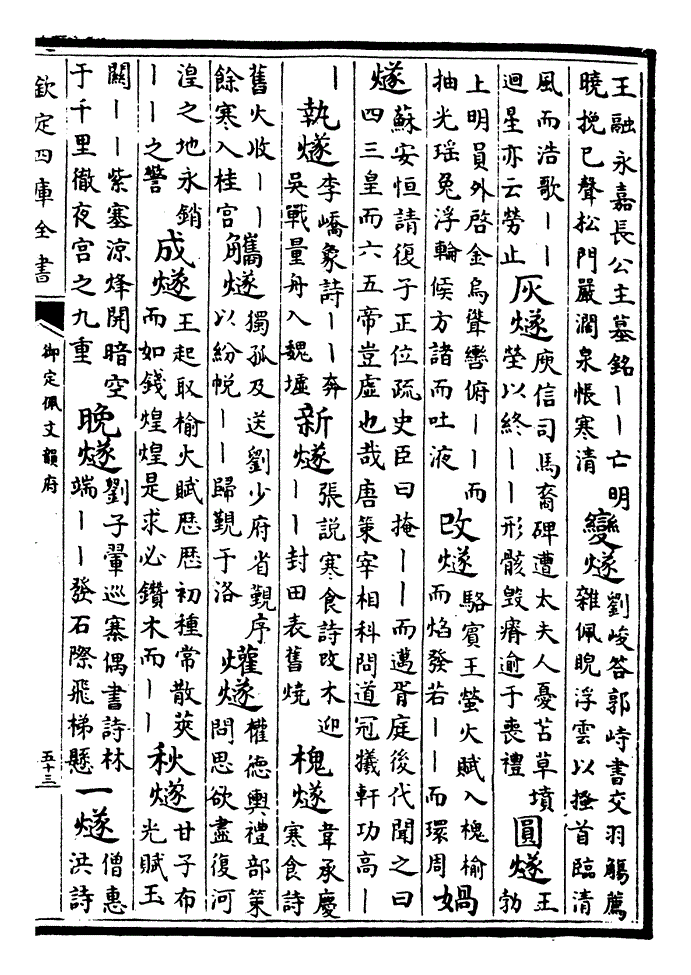 王融永嘉長公主墓銘——亡明
曉挽已聲松門嚴澗泉帳寒清
變燧
劉峻答郭峙書交羽觴薦
雜佩睨浮雲以搔首臨清
風而浩歌——
迴星亦云勞止
灰燧
庾信司馬裔碑遭太夫人憂苫草墳
塋以終——形骸毀瘠逾于喪禮
圓燧
王
勃
上明員外啓金烏聳轡俯——而
抽光瑶兔浮輪候方諸而吐液
改燧
駱賓王螢火賦入槐榆
而焰發若——而環周
媧
燧
蘇安恒請復子正位疏史臣曰掩——而邁胥庭後代聞之曰
四三皇而六五帝豈虛也哉唐策宰相科問道冠犧軒功高—
—
執燧
李嶠象詩——奔
吳戰量舟入魏墟
新燧
張説寒食詩改木迎
——封田表舊燒
槐燧
韋承慶
寒食詩
舊火收——
餘寒入桂宫
觿燧
獨孤及送劉少府省覲序
以紛帨——歸覲于洛
爟燧
權德輿禮部策
問思欲盡復河
湟之地永銷
——之警
成燧
王起取榆火賦歴歴初種常散莢
而如錢煌煌是求必鑽木而——
秋燧
甘子布
光賦玉
關——紫塞涼烽開暗空
于千里徹夜宫之九重
晚燧
劉子翬巡寨偶書詩林
端——發石際飛梯懸
一燧
僧惠
洪詩
欽定四庫全書
御定佩文韻府
五十三